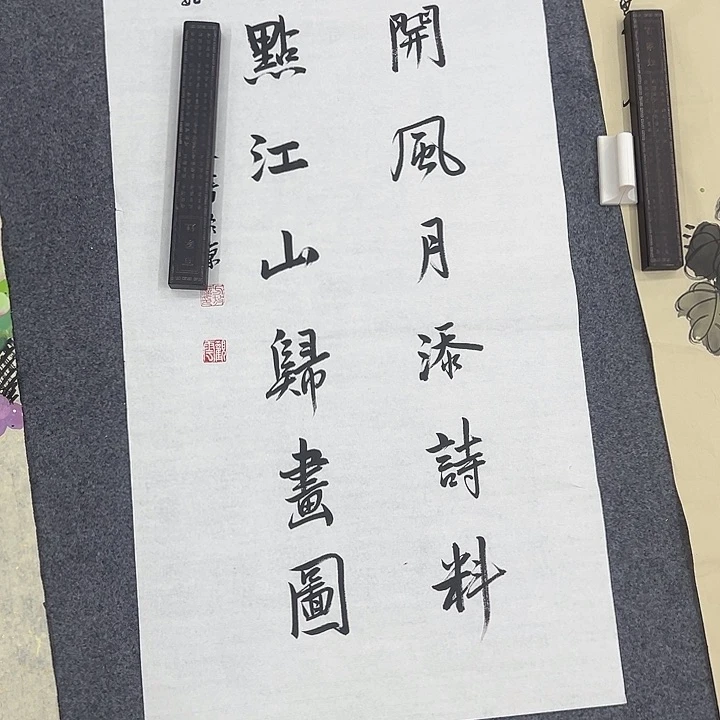 開風月添詩料
點江山歸畫圖